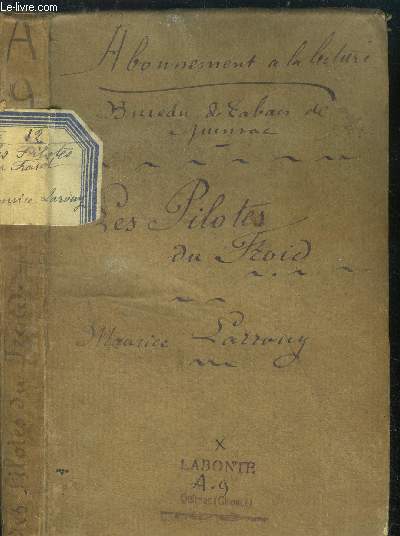 Le-livre.com
Abonnement a la lecture
Bureau de Tabacs de
Quinsac
Les Pilotes
du Froid
Maurice Larrouy
X
LABONTE
A-9
Quinsac (Gironde)
A
9
12
Les Pilotes
du Froid
Maurice Larrouy
Les Pilotes du Froid